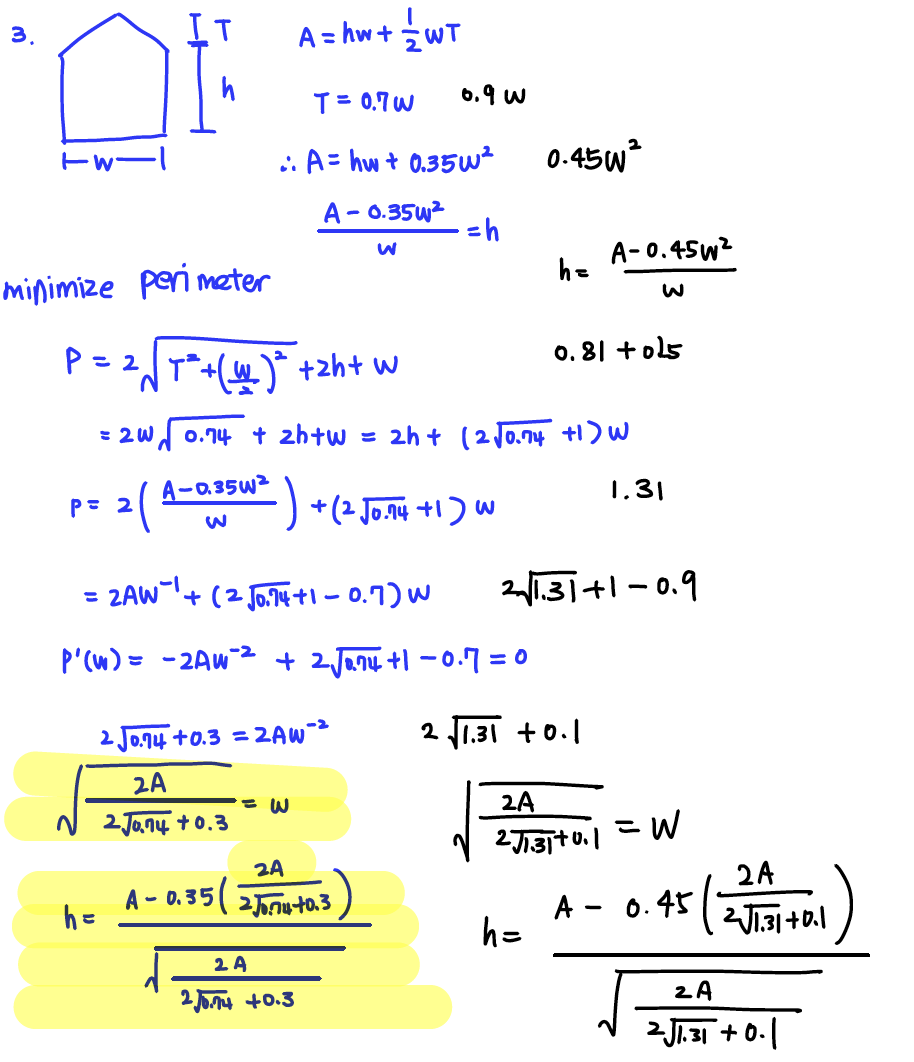 3.
T
h
w
A = hw + 1/2 wT
T = 0.7w 0.9w
∴ A = hw + 0.35w² 0.45w²
(A - 0.35w²)/w = h
h = (A - 0.45w²)/w
minimize perimeter
P = 2√(T² + (w/2)²) + 2h + w 0.81 + 025
= 2w√0.74 + 2h + w = 2h + (2√0.74 + 1)w
P = 2((A - 0.35w²)/w) + (2√0.74 + 1)w 1.31
= 2Aw⁻¹ + (2√0.74 + 1 - 0.7)w 2√1.31 + 1 - 0.9
P'(w) = -2Aw⁻² + 2√0.74 + 1 - 0.7 = 0
2√0.74 + 0.3 = 2Aw⁻² 2√1.31 + 0.1
√(2A/(2√0.74 + 0.3)) = w √(2A/(2√1.31 + 0.1)) = w
h = (A - 0.35(2A/(2√0.74 + 0.3)))/√(2A/(2√0.74 + 0.3))
h = (A - 0.45(2A/(2√1.31 + 0.1)))/√(2A/(2√1.31 + 0.1))